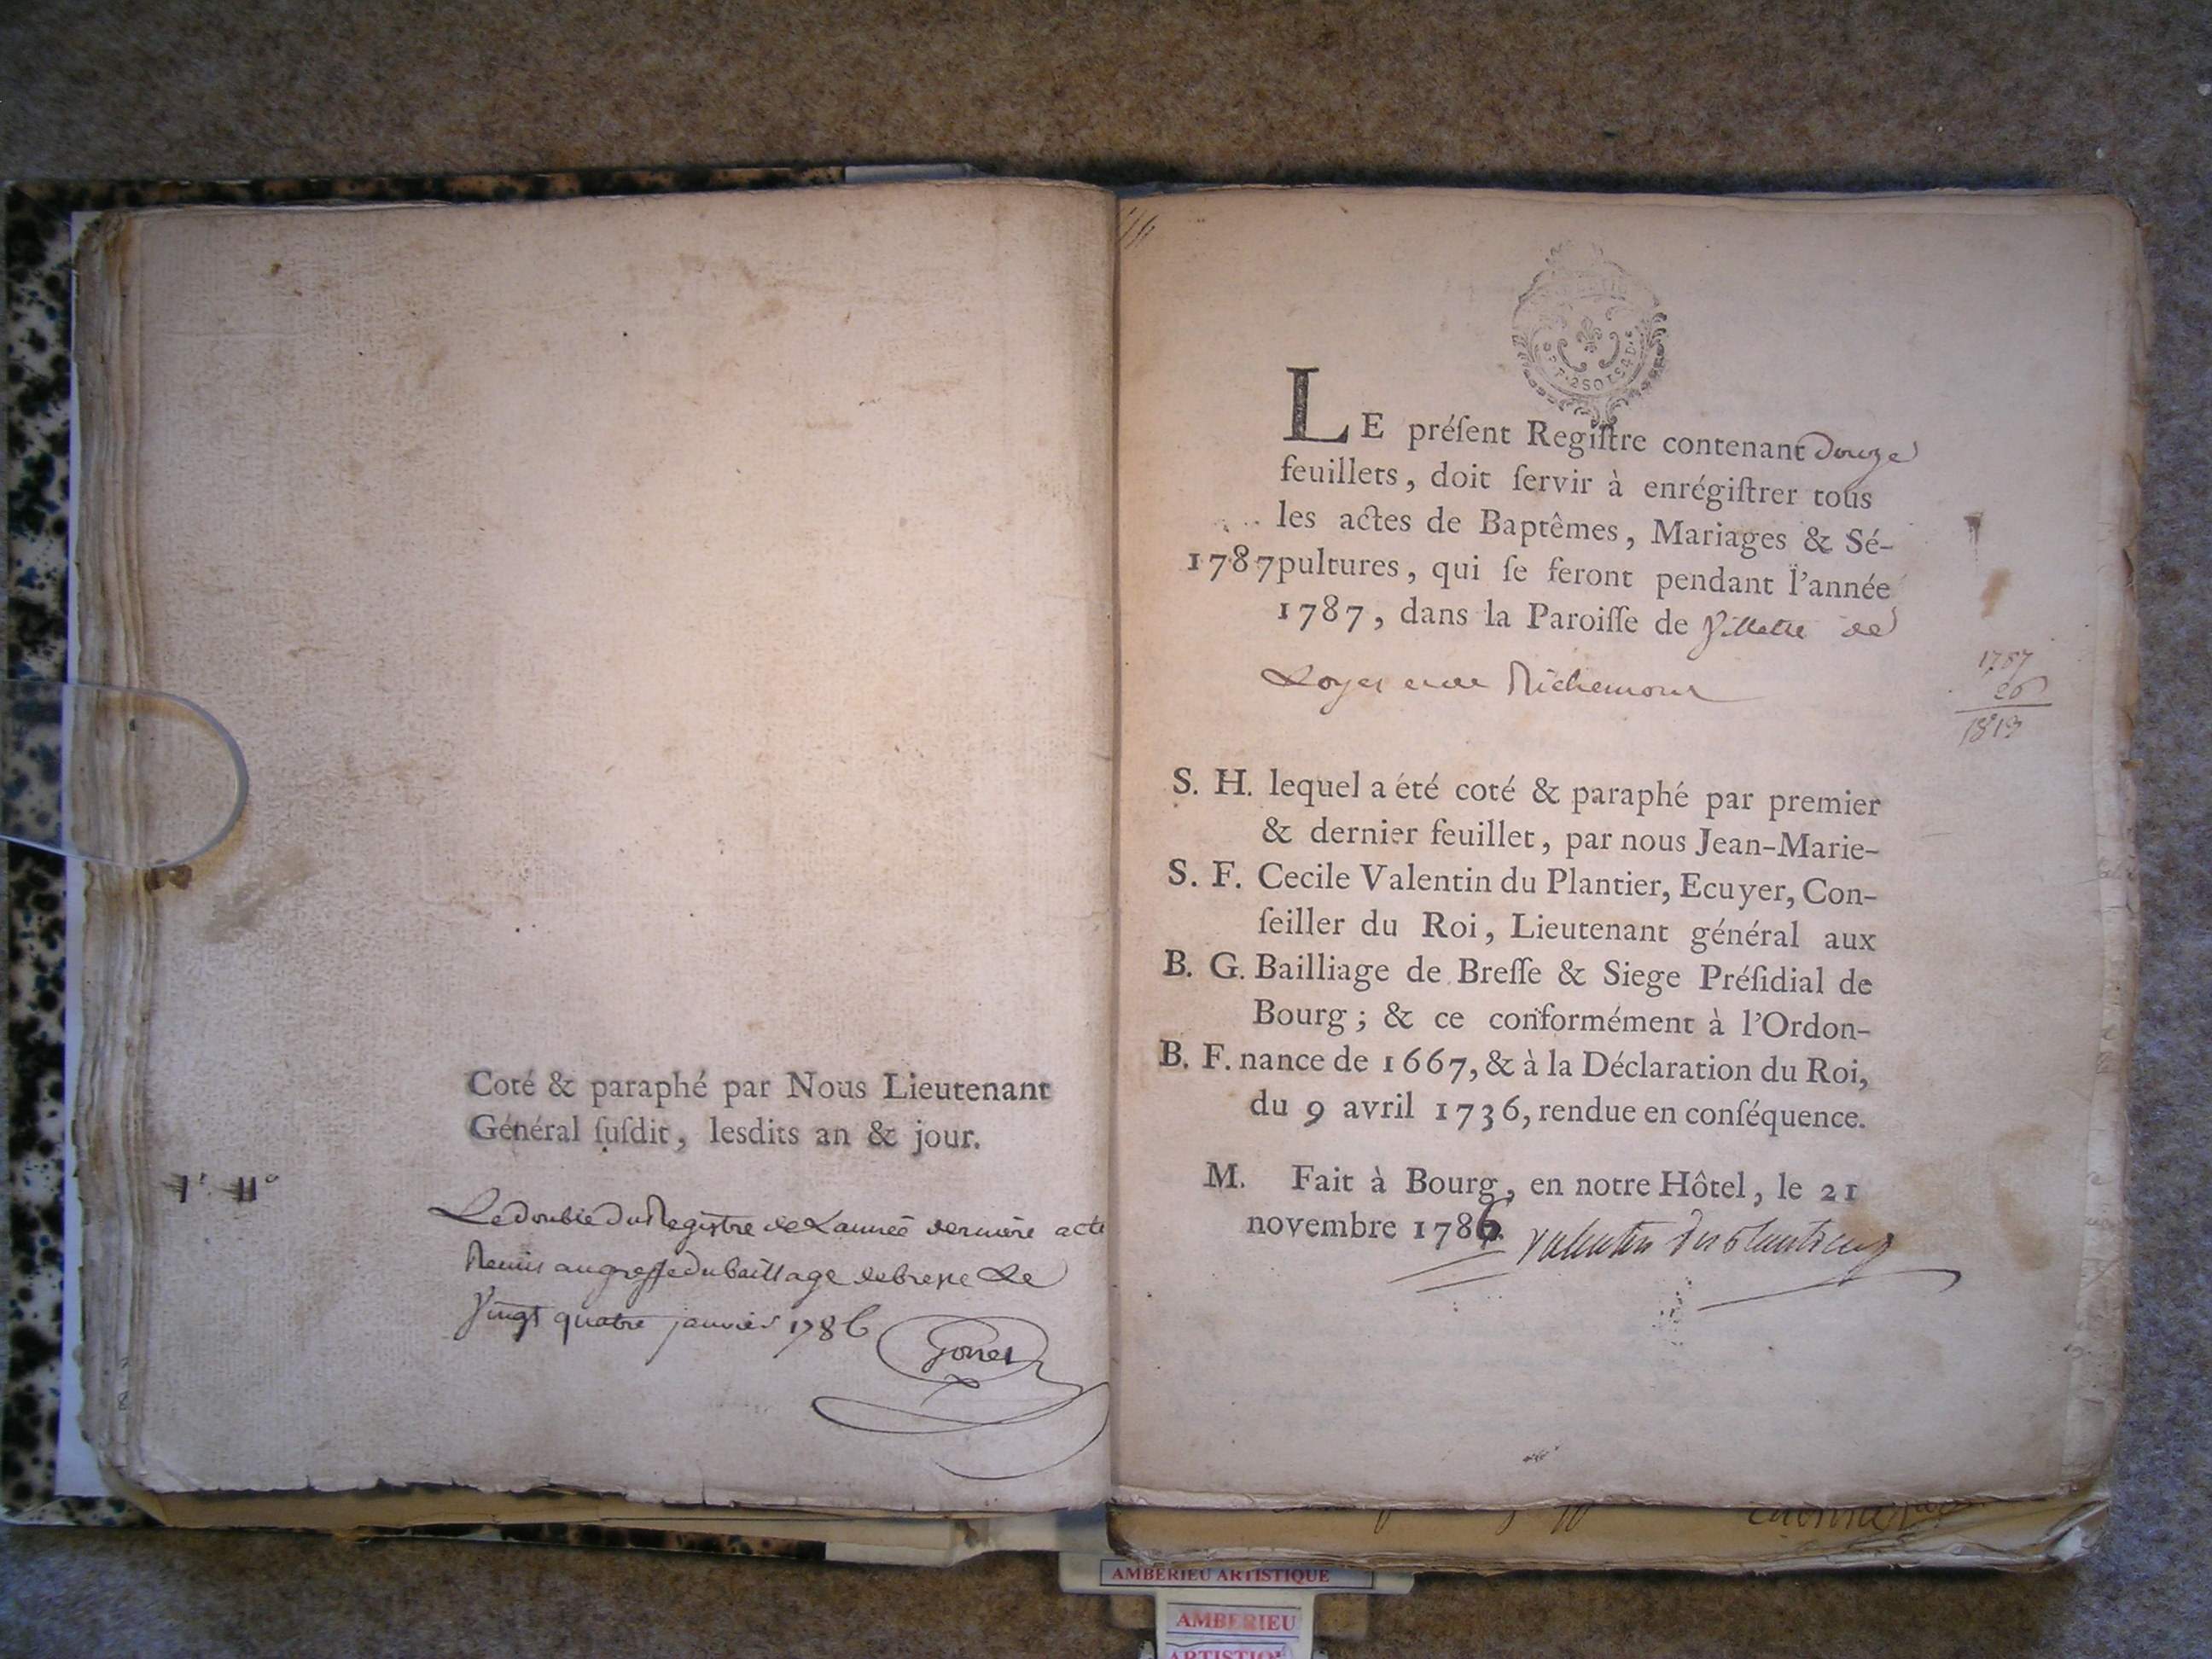 Coté & paraphé par Nous Lieutenant
Général ſuſdit, lesdits an & jour.
Le double du Registre de L'année derniere a eté
Remis au greffe du bailliage de bresse Le
Vingt quatre janvier 1786
LE préſent Regiſtre contenant Douze
feuillets, doit ſervir à enrégiſtrer tous
les actes de Baptêmes, Mariages & Sé-
1787 pultures, qui ſe feront pendant l'année
1787, dans la Paroiſſe de Villette de
Loyes et de Richemont
1787
26
1813
S. H. lequel a été coté & paraphé par premier
& dernier feuillet, par nous Jean-Marie-
S. F. Cecile Valentin du Plantier, Ecuyer, Con-
ſeiller du Roi, Lieutenant général aux
B. G. Bailliage de Breſſe & Siege Préſidial de
Bourg; & ce conformément à l'Ordon-
B. F. nance de 1667, & à la Déclaration du Roi,
du 9 avril 1736, rendue en conſéquence.
M. Fait à Bourg, en notre Hôtel, le 21
novembre 1786. Valentin du Plantier
AMBERIEU ARTISTIQUE
AMBERIEU
ARTISTIQUE